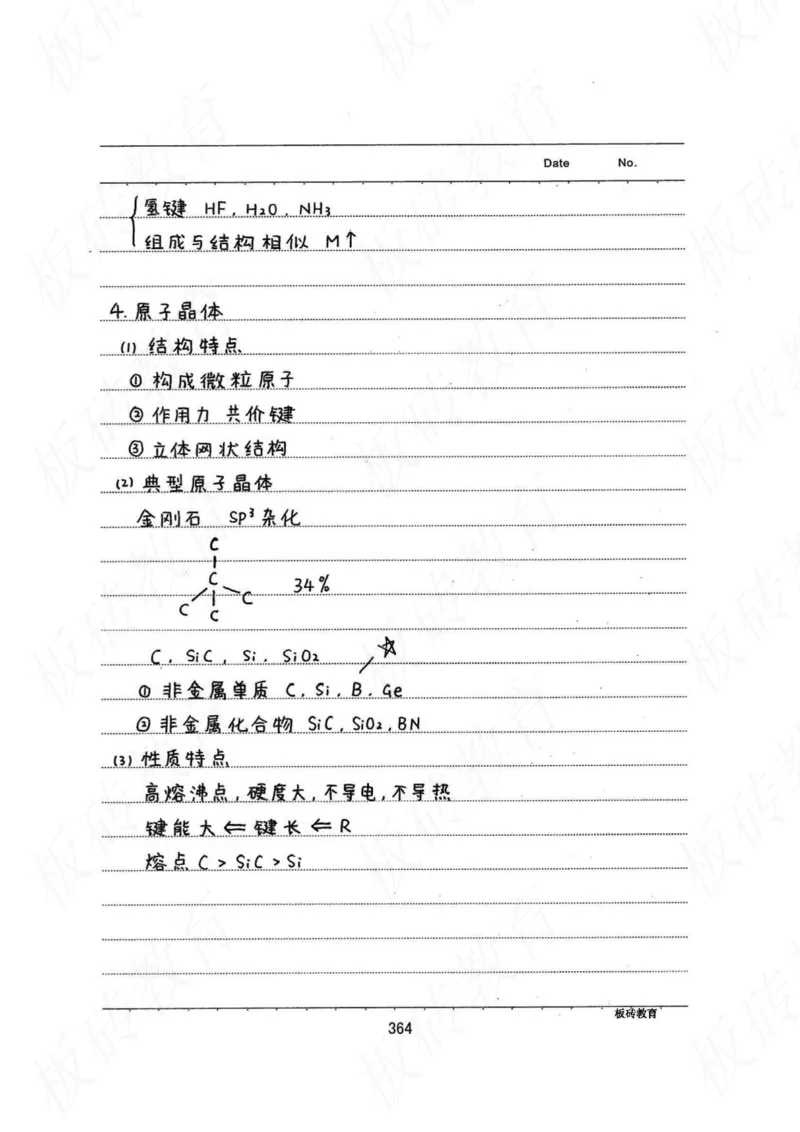 Date No.
氢键 HF, H2O, NH3
组成与结构相似 M↑
4. 原子晶体
(1) 结构特点
① 构成微粒原子
② 作用力 共价键
③ 立体网状结构
(2) 典型原子晶体
金刚石 sp³杂化
C
C 34%
C C
C
C, SiC, Si, SiO2 ☆
① 非金属单质 C, Si, B, Ge
② 非金属化合物 SiC, SiO2, BN
(3) 性质特点
高熔沸点,硬度大,不导电,不导热
键能大⇐键长⇐R
熔点 C > SiC > Si
板砖教育
364